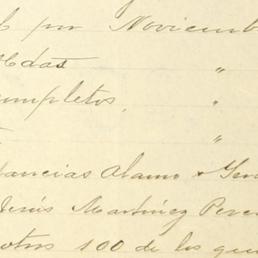 por Noviemb
"
completos, "
"
tancias Alamo &
Jesús Martínez Pere
otros 100 de los que